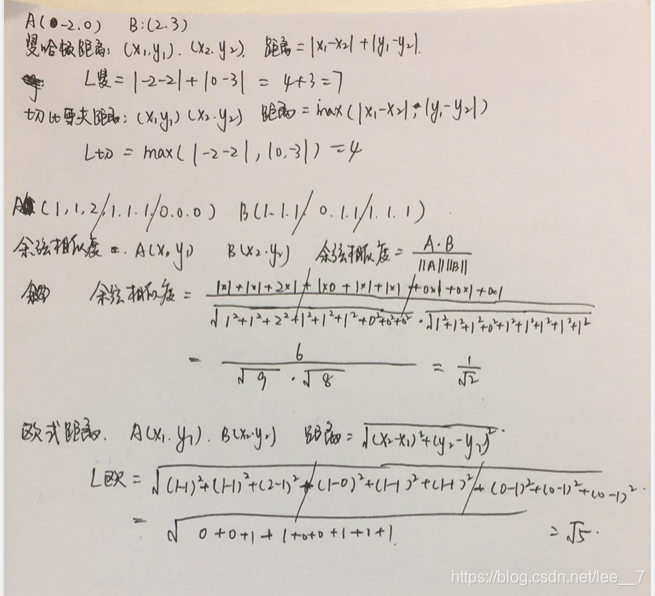 A(-2.0) B:(2.3)
曼哈顿距离: (x₁,y₁). (x₂.y₂). 距离=|x₁-x₂|+|y₁-y₂|.
L曼=|-2-2|+|0-3| = 4+3=7
切比雪夫距离: (x₁y₁) (x₂.y₂) 距离=max(|x₁-x₂|,|y₁-y₂|)
L切 = max(|-2-2|,|0,-3|)=4
A(1,1,2/1.1.1/0.0.0) B(1.1.1/ 0.1.1/1.1.1)
余弦相似度 A(x₁y₁) B(x₂.y₂) 余弦相似度= A·B / ||A||||B||
余弦相似度 = 1×1+1×1+2×1+1×0+1×1+1×1+0×1+0×1+0×1 / √1²+1²+2²+1²+1²+1²+0²+0²+0² · √1²+1²+1²+0²+1²+1²+1²+1²+1²
= 6 / √9 · √8 = 1/√2
欧式距离. A(x₁.y₁). B(x₂.y₂) 距离=√(x₂-x₁)²+(y₂-y₁)².
L欧 = √(1-1)²+(1-1)²+(2-1)²+(1-0)²+(1-1)²+(1-1)²+(0-1)²+(0-1)²+(0-1)².
= √0+0+1+1+0+0+1+1+1. =√5.
https://blog.csdn.net/lee__7